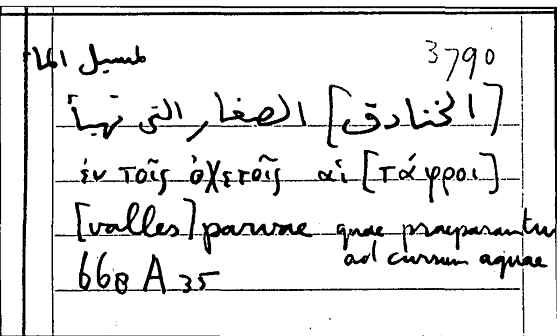 لمسيل الما 3790
[الخنادق] الصغار التى تهيأ
ἐν τοῖς ὀχετοῖς αἱ [τάφροι]
[valles] parvae quae praeparantur
ad cursum aquae
668 A 35